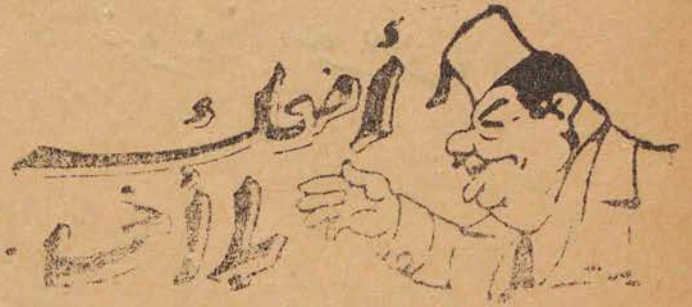 أضحك
يا أخى